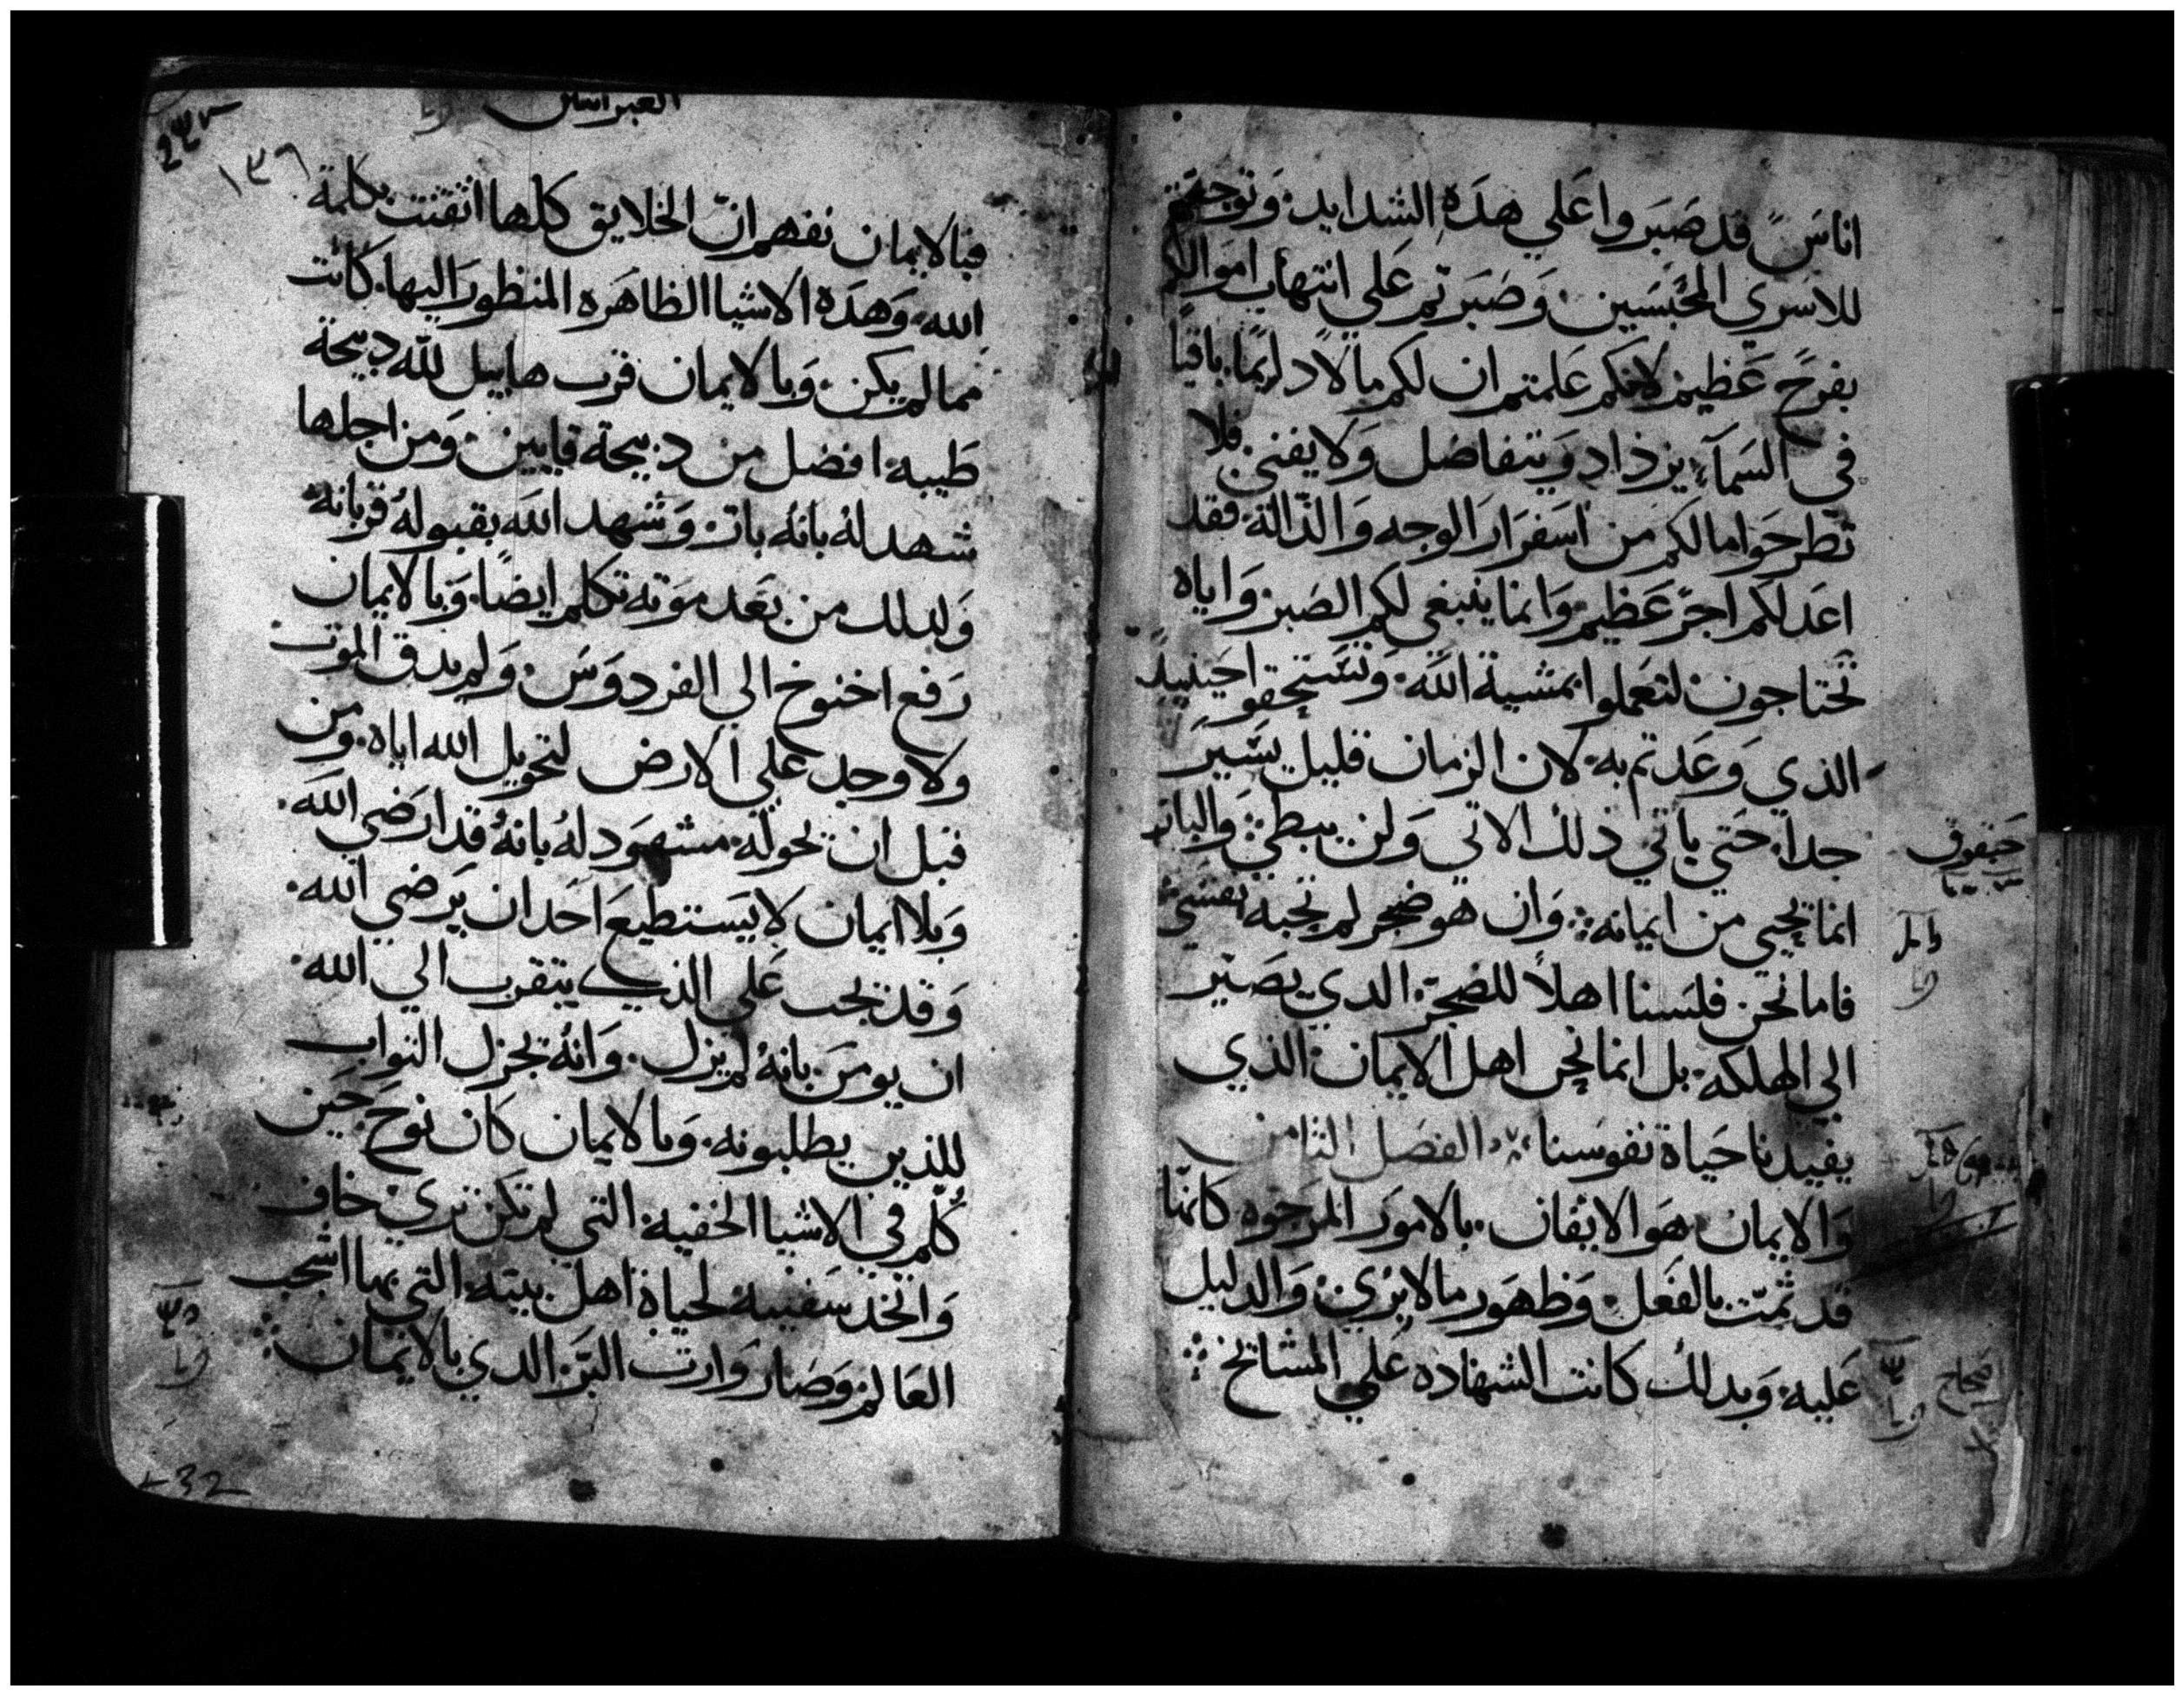 اناسً قد صَبَروا عَلي هدَه الشدايد. وَتوجعتم
للاسَري المحُبَسَين. وَصَبَرتم عَلي انتهاب اموالكم
بفرحَ عَظيم لانكم عَلمتم ان لكم مالاً دايمًا باقيًا
في السَمآء يزداد وَيتفاضل وَلا يفني. فلا
تطرحَوا مالكم من اسَفرَار الوجه وَالدّالة. فقد
اعَد لكم اجرَ عَظيم. وَانما ينبغي لكم الصَبر. وَاياه
تحَتاجون. لتعَملوا بمشية اللَه. وَتسَتحقوا حَينيدً
الذي وَعَدتم به. لان الزمان قليل يسَيَر
جدا. حَتي ياتي ذلك الاتي وَلن يبطي. وَالبار
انما يحَيي من ايمانه: وَان هو ضجر لم تحبه نفسَي
فاما نحَن فلسَنا اهلاً للضجر. الدي يصَير
الي الهلكه. بل انما نحَن اهل الايمان. الذي
يفيدنا حَياة نفوسَنا. الفصَل الثامن
وَالايمان. هوَ الايقان. بالامور المرَجوه كانها
قد تمّت بالفعَل. وَظهوَر ما لا يرُي. وَالدليل
عَليه. وَبدلك كانت الشهاده عَلي المشايخ
حَبقوق
صَحاح
العبرانيين
١٣٦
فبالايمان نفهم انّ الخلايق كلها اتقنت بكلمة
الله. وَهدَه الاشيا الظاهَره المنظور اليها. كانت
مما لم يكن. وَبالايمان قرب هابيل للّه دبيحة
طَيبه. افضل من دبيحة قايين. وَمن اجلها
شهد لهُ بانهُ بار. وَشهد اللَه بقبولهُ قربانهُ
وَلدلك من بعَد موَته تكلم ايضًا. وَبالايمان
رَفع اخنوخ الي الفردوَسَ. وَلم يدق الموَت
ولا وجد عَلي الارض لتحويل الله اياه. ومن
قبل ان تحولّه. مشهوَد لهُ بانهُ قد ارضَي اللَه.
وَبلا ايمان لا يسَتطيعَ احَد ان يَرضي الله.
وَقد يجب عَلي الذي يتقرب الي الله.
ان يومنَ بانهُ لم يزل. وَانهُ يجزل الثواب
للذين يطلبونه. وَبالايمان كان نوحَ حَين
كُلّم في الاشيا الخفيه. التي لم تكن تري خاف
وَاتخد سَفينه لحياة اهل بيته. التي بها اشجب
العَالم. وَصَار وَارت البّر الدي بالايمَان